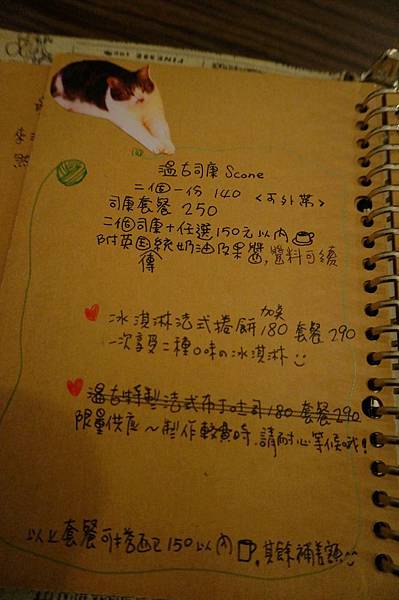 溫古司康 Scone
二個一份 140 <可外帶>
司康套餐 250
二個司康+任選150元以內
附英國傳統奶油及果醬,醬料可續
冰淇淋法式捲餅 加点 180 套餐 290
一次享受二種口味の冰淇淋
溫古特製法式布丁吐司180 套餐290
限量供應~製作較費時,請耐心等候哦!
以上套餐可搭配150以內,其餘補差額